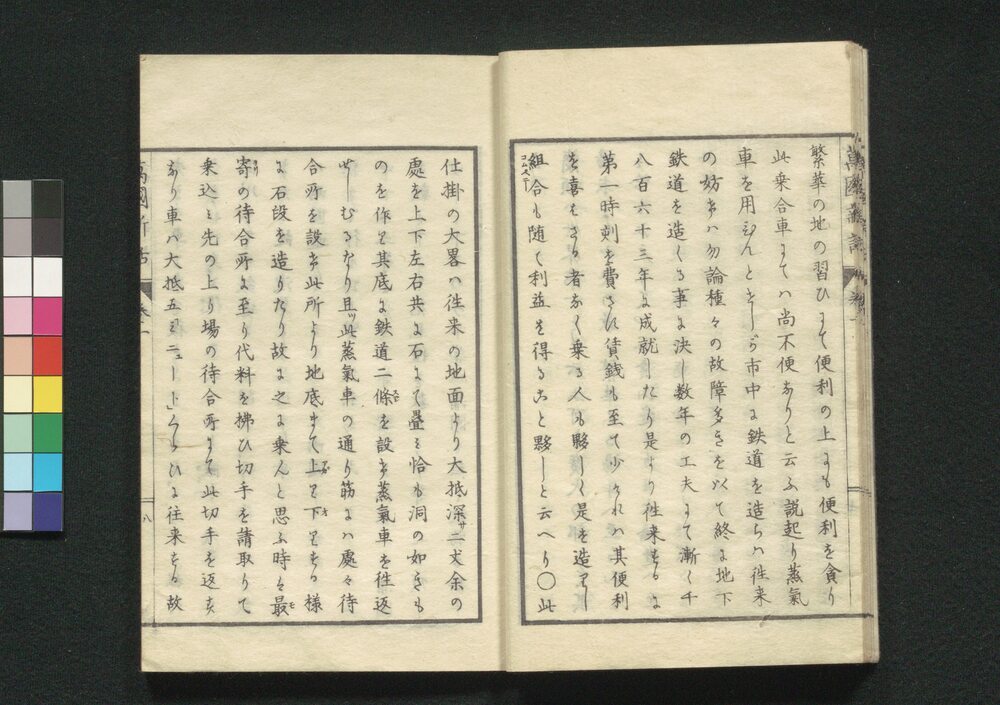 繁華の地の習ひにて便利の上にも便利を貪り
此乗合車にてハ尚不便ありと云ふ説起り蒸氣
車を用ひんとせしが市中に鉄道を造らハ往来
の妨けハ勿論種々の故障多きを以て終に地下
鉄道を造くる事に決し数年の工夫にて漸く千
八百六十三年に成就したり是より往来するに
第一時刻を費さす賃銭も至て少けれハ其便利
を喜はさる者なく乗る人も夥しく是を造りし
組合も随て利益を得ること夥しと云へり〇此
コムペニー
仕掛の大畧ハ往来の地面より大抵深サ二丈余の
處を上下左右共に石にて疊ミ恰も洞の如きも
のを作り其底に鉄道二條を設け蒸氣車を往返
せしむるなり且ツ此蒸氣車の通り筋にハ處々待
合所を設け此所より地底まて上り下りをる様
に石段を造りたり故に之に乗んと思ふ時ハ最
寄の待合所に至り代料を拂ひ切手を請取りて
乗込ミ先の上り場の待合所にて此切手を返す
なり車ハ大抵五ミニュートくらひに往来をる故
萬國新話
巻一
八